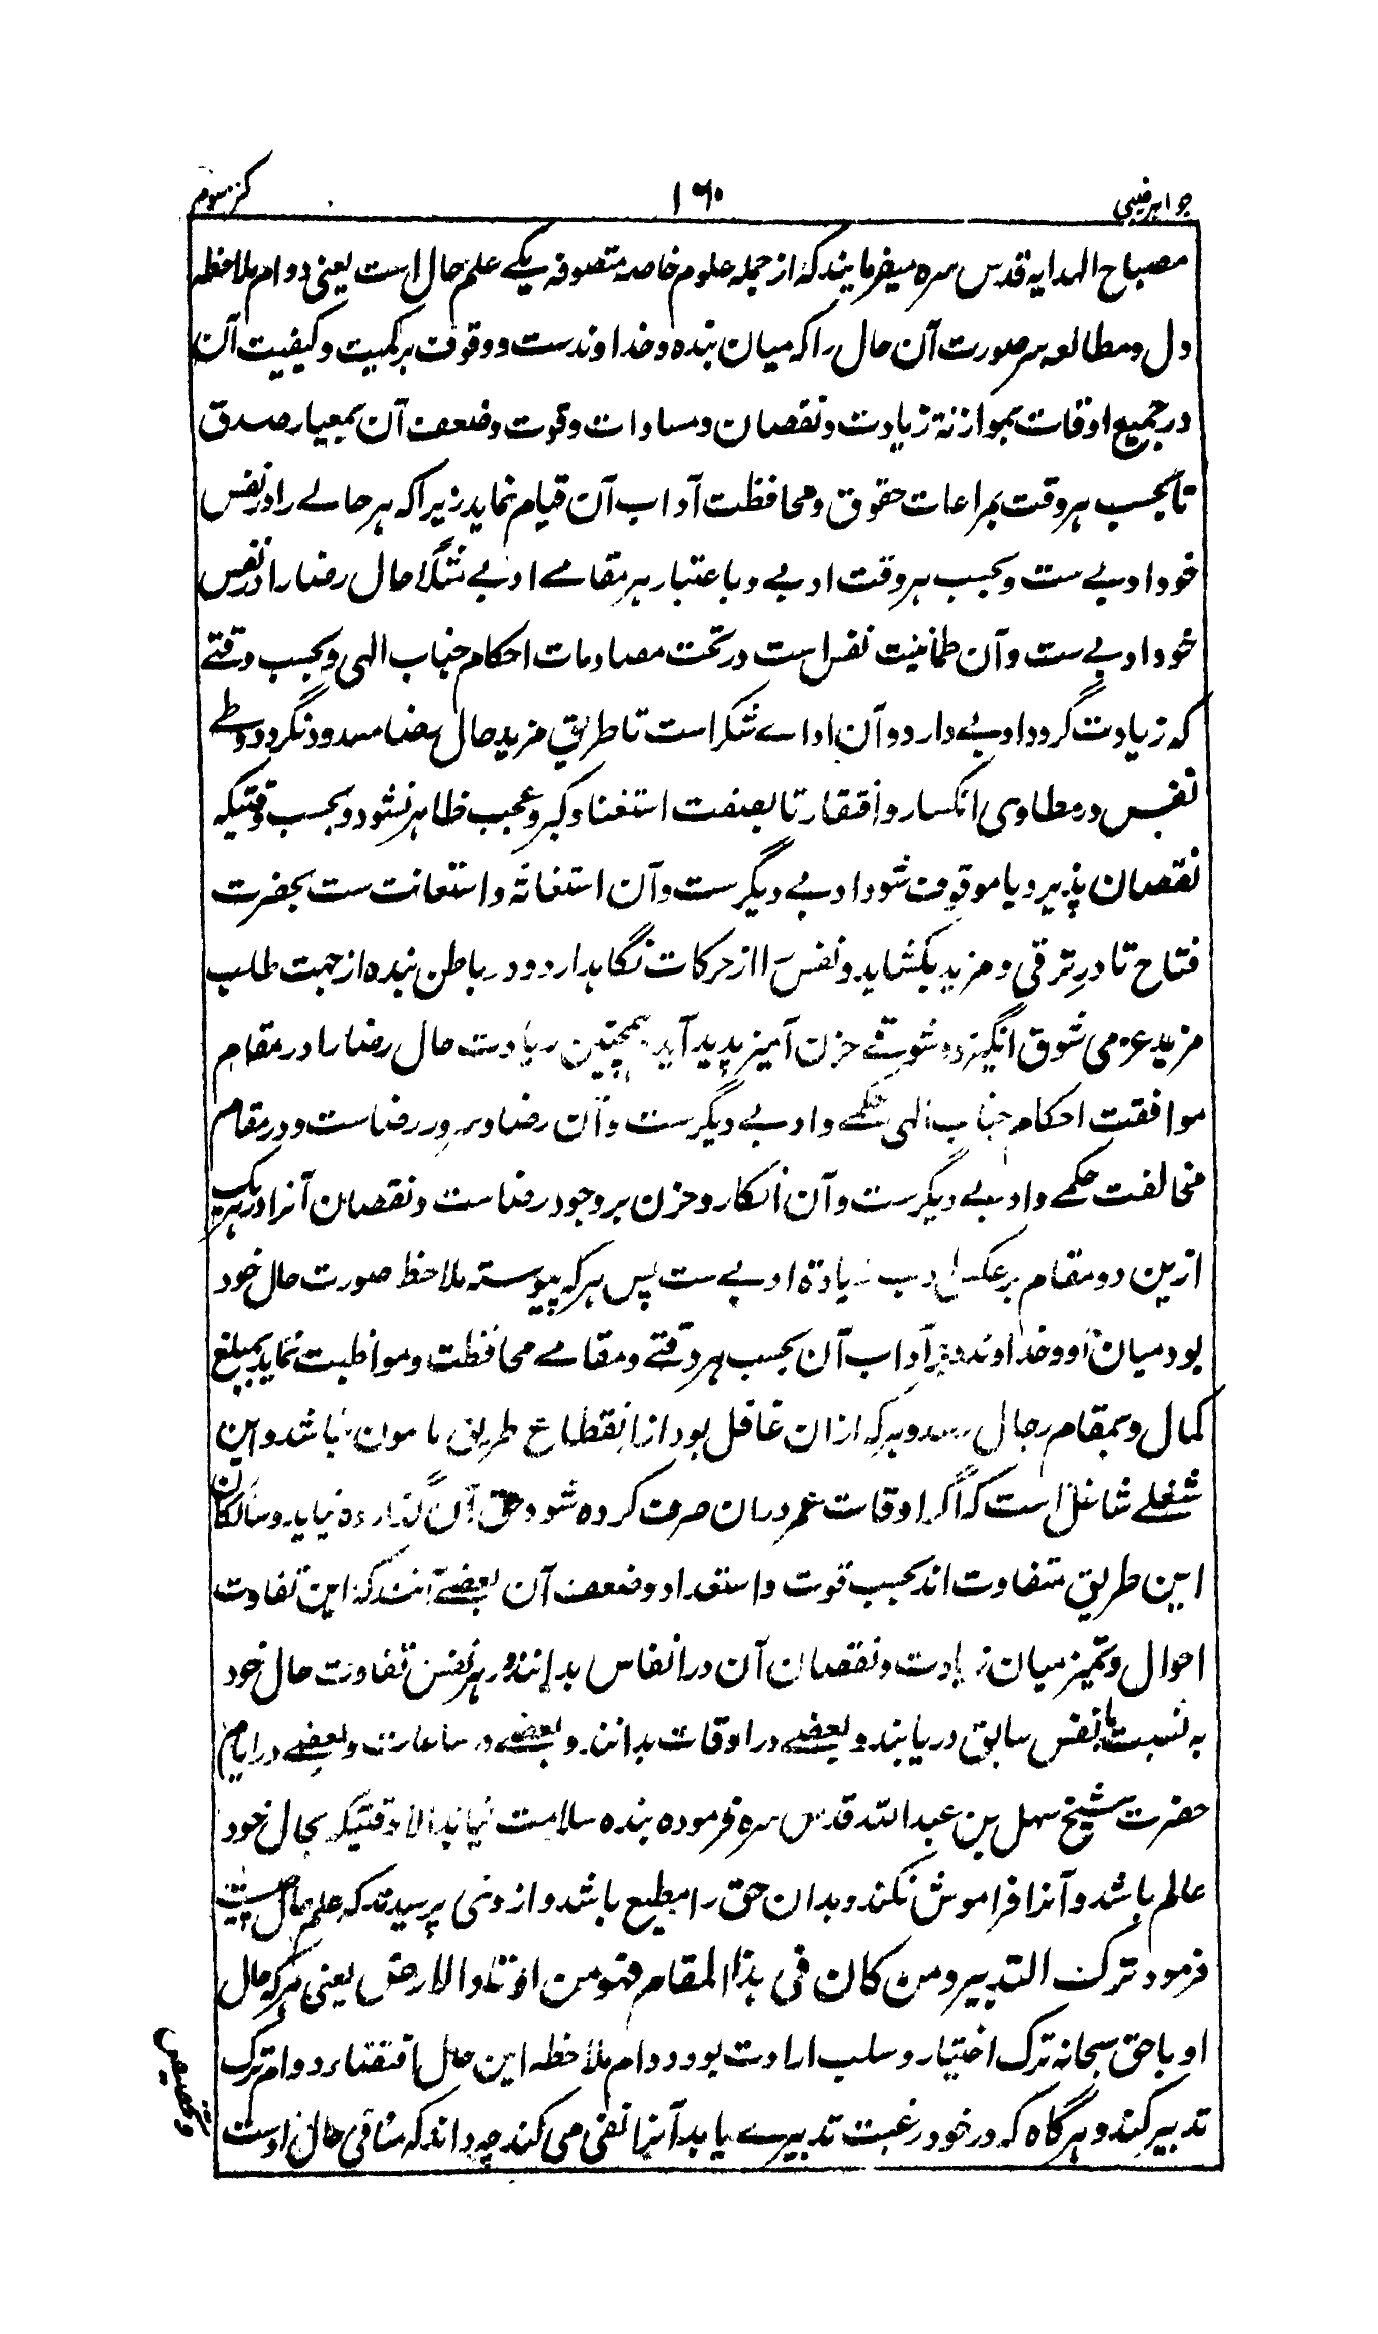 جواهر غیبی ۱۶۰ کنز سوم
مصباح الهدایه قدس سره میفرمایند که از جمله علوم خاصه متصوفه یکے علم حال است یعنی دوام ملاحظه
دل و مطالعه سر صورت آن حال را که میان بنده و خداوندست و وقوف بر کمیت و کیفیت آن
در جمیع اوقات بموازنۀ زیادت و نقصان و مساوات و قوت و ضعف آن بمعیار صدق
تا بحسب هر وقت بمراعات حقوق و محافظت آداب آن قیام نماید زیرا که هر حالے را در نفس
خود ادبے ست و بحسب هر وقت ادبے و باعتبار هر مقامے ادبے مثلاً حال رضا را در نفس
خود ادبے ست و آن طمانیت نفس است در تحت مصادمات احکام جناب الهی و بحسب وقتے
که زیادت گردد ادبے دارد و آن اداے شکر است تا طریق مزید حال رضا مسدود نگردد و طے
نفس در مطاوی انکسار و افتقار تا بصفت استغنا و کبر و عجب ظاهر نشود و بحسب وقتیکه
نقصان پذیرد یا موقوف شود ادبے دیگرست و آن استغاثه و استعانت ست بحضرت
فتاح تا درِ ترقی و مزید بکشاید و نفس را از حرکات نگاهدارد و در باطن بنده از جهت طلب
مزید عزمی شوق انگیز و شوقے حزن آمیز پدید آید همچنین زیادت حال رضا را در مقام
موافقت احکام جناب الهی حکمے و ادبے دیگرست و آن رضا و سرور رضاست و در مقام
مخالفت حکمے و ادبے دیگرست و آن انکار و حزن بر وجود رضاست و نقصان آنرا در هر یک
ازین دو مقام بر عکس ادب زیادة ادبے ست پس هر که پیوسته ملاحظ صورت حال خود
بود میان او و خداوند و بر آداب آن بحسب هر وقتے و مقامے محافظت و مواظبت نماید بمبلغ
کمال و بمقام رجال رسد و هر که ازان غافل بود از انقطاع طریق مامون نباشد و این
شغلے شاغل است که اگر اوقات عمر دران صرف کرده شود حق آن گذارده نیاید و سالکان
این طریق متفاوت اند بحسب قوت و استعداد و ضعف آن بعضے آنند که این تفاوت
احوال و تمیز میان زیادت و نقصان آن در انفاس بدانند و در هر نفس تفاوت حال خود
به نسبت با نفس سابق دریابند و بعضے در اوقات بدانند و بعضے در ساعات و بعضے در ایام
حضرت شیخ سهل بن عبدالله قدس سره فرموده بنده سلامت نیابد الا وقتیکه بحال خود
عالم باشد و آنرا فراموش نکند و بدان حق را مطیع باشد و از وی پرسیدند که علم حال چیست
فرمود ترک التدبیر و من کان فی هذا المقام فهو من اوتاد الارض یعنی هر که حال
او با حق سبحانه ترک اختیار و سلب ارادت بود و دوام ملاحظه این حال اقتضاء دوام ترک
تدبیر کند و هرگاه که در خود رغبت تدبیرے یابد آنرا نفی می کند چه داند که منافی حال اوست